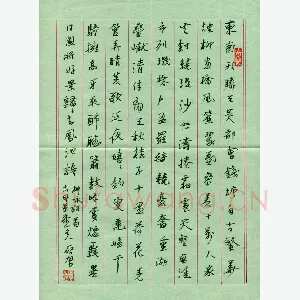 東南形勝三吳都會錢塘自古繁華
煙柳畫橋風簾翠幕參差十萬人家
雲樹繞堤沙怒濤捲霜雪天塹無涯
市列珠璣戶盈羅綺競豪奢重湖
疊巘清佳有三秋桂子十里荷花羌
管弄晴菱歌泛夜嬉嬉釣叟蓮娃千
騎擁高牙乘醉聽簫鼓吟賞煙霞異
日圖將好景歸去鳳池誇
柳永詞